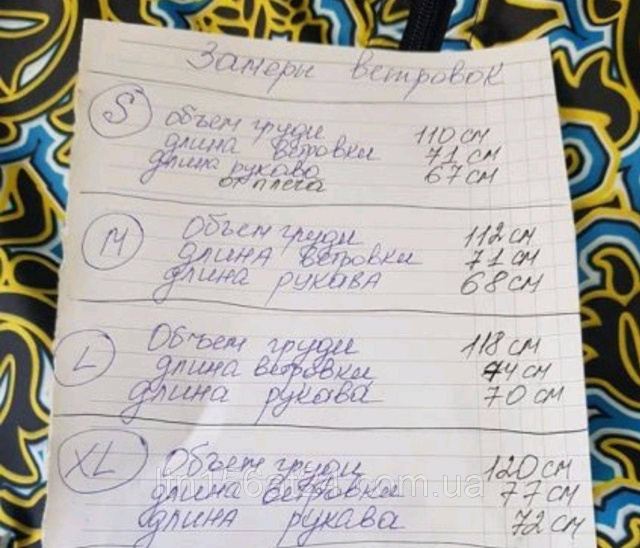 Замеры ветровок
S объем груди 110 см
длина ветровки 71 см
длина рукава 67 см
от плеча
M Объем груди 112 см
длина ветровки 71 см
длина рукава 68 см
L Объем груди 118 см
длина ветровки 74 см
длина рукава 70 см
XL Объем груди 120 см
длина ветровки 77 см
длина рукава 72 см